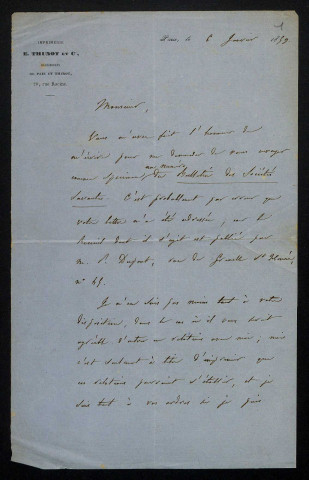 1
IMPRIMERIE
E. THUNOT ET Cie,
26, rue Racine.
Paris, le 6 Janvier 1859
Monsieur,
Vous m'avez fait l'honneur de
m'écrire pour me demander de vous envoyer
comme spécimen, un numéro du Bulletin des Sociétés
Savantes. C'est probablement par erreur que
votre lettre m'a été adressée, car le
Recueil dont il s'agit est publié par
M. P. Dupont, rue de Grenelle St Honoré,
n° 45.
Je n'en suis pas moins tout à votre
disposition, dans le cas où il vous serait
agréable d'entrer en relations avec moi; mais
c'est seulement à titre d'imprimeur que
ces relations pourraient s'établir, et je
suis tout à vos ordres si je puis